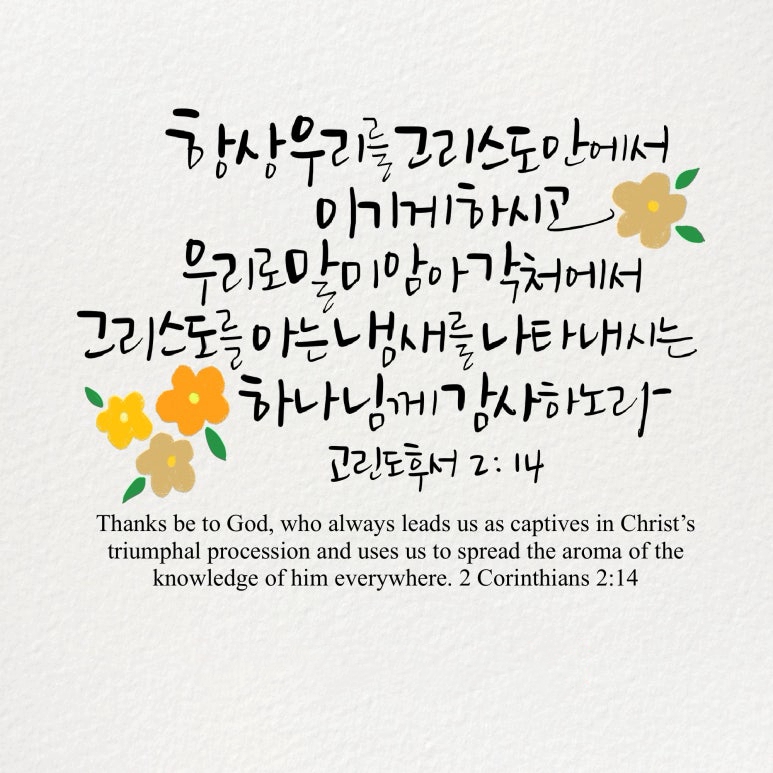 항상 우리를 그리스도 안에서
이기게 하시고
우리로 말미암아 각처에서
그리스도를 아는 냄새를 나타내시는
하나님께 감사하노라
고린도후서 2:14
Thanks be to God, who always leads us as captives in Christ’s
triumphal procession and uses us to spread the aroma of the
knowledge of him everywhere. 2 Corinthians 2:14